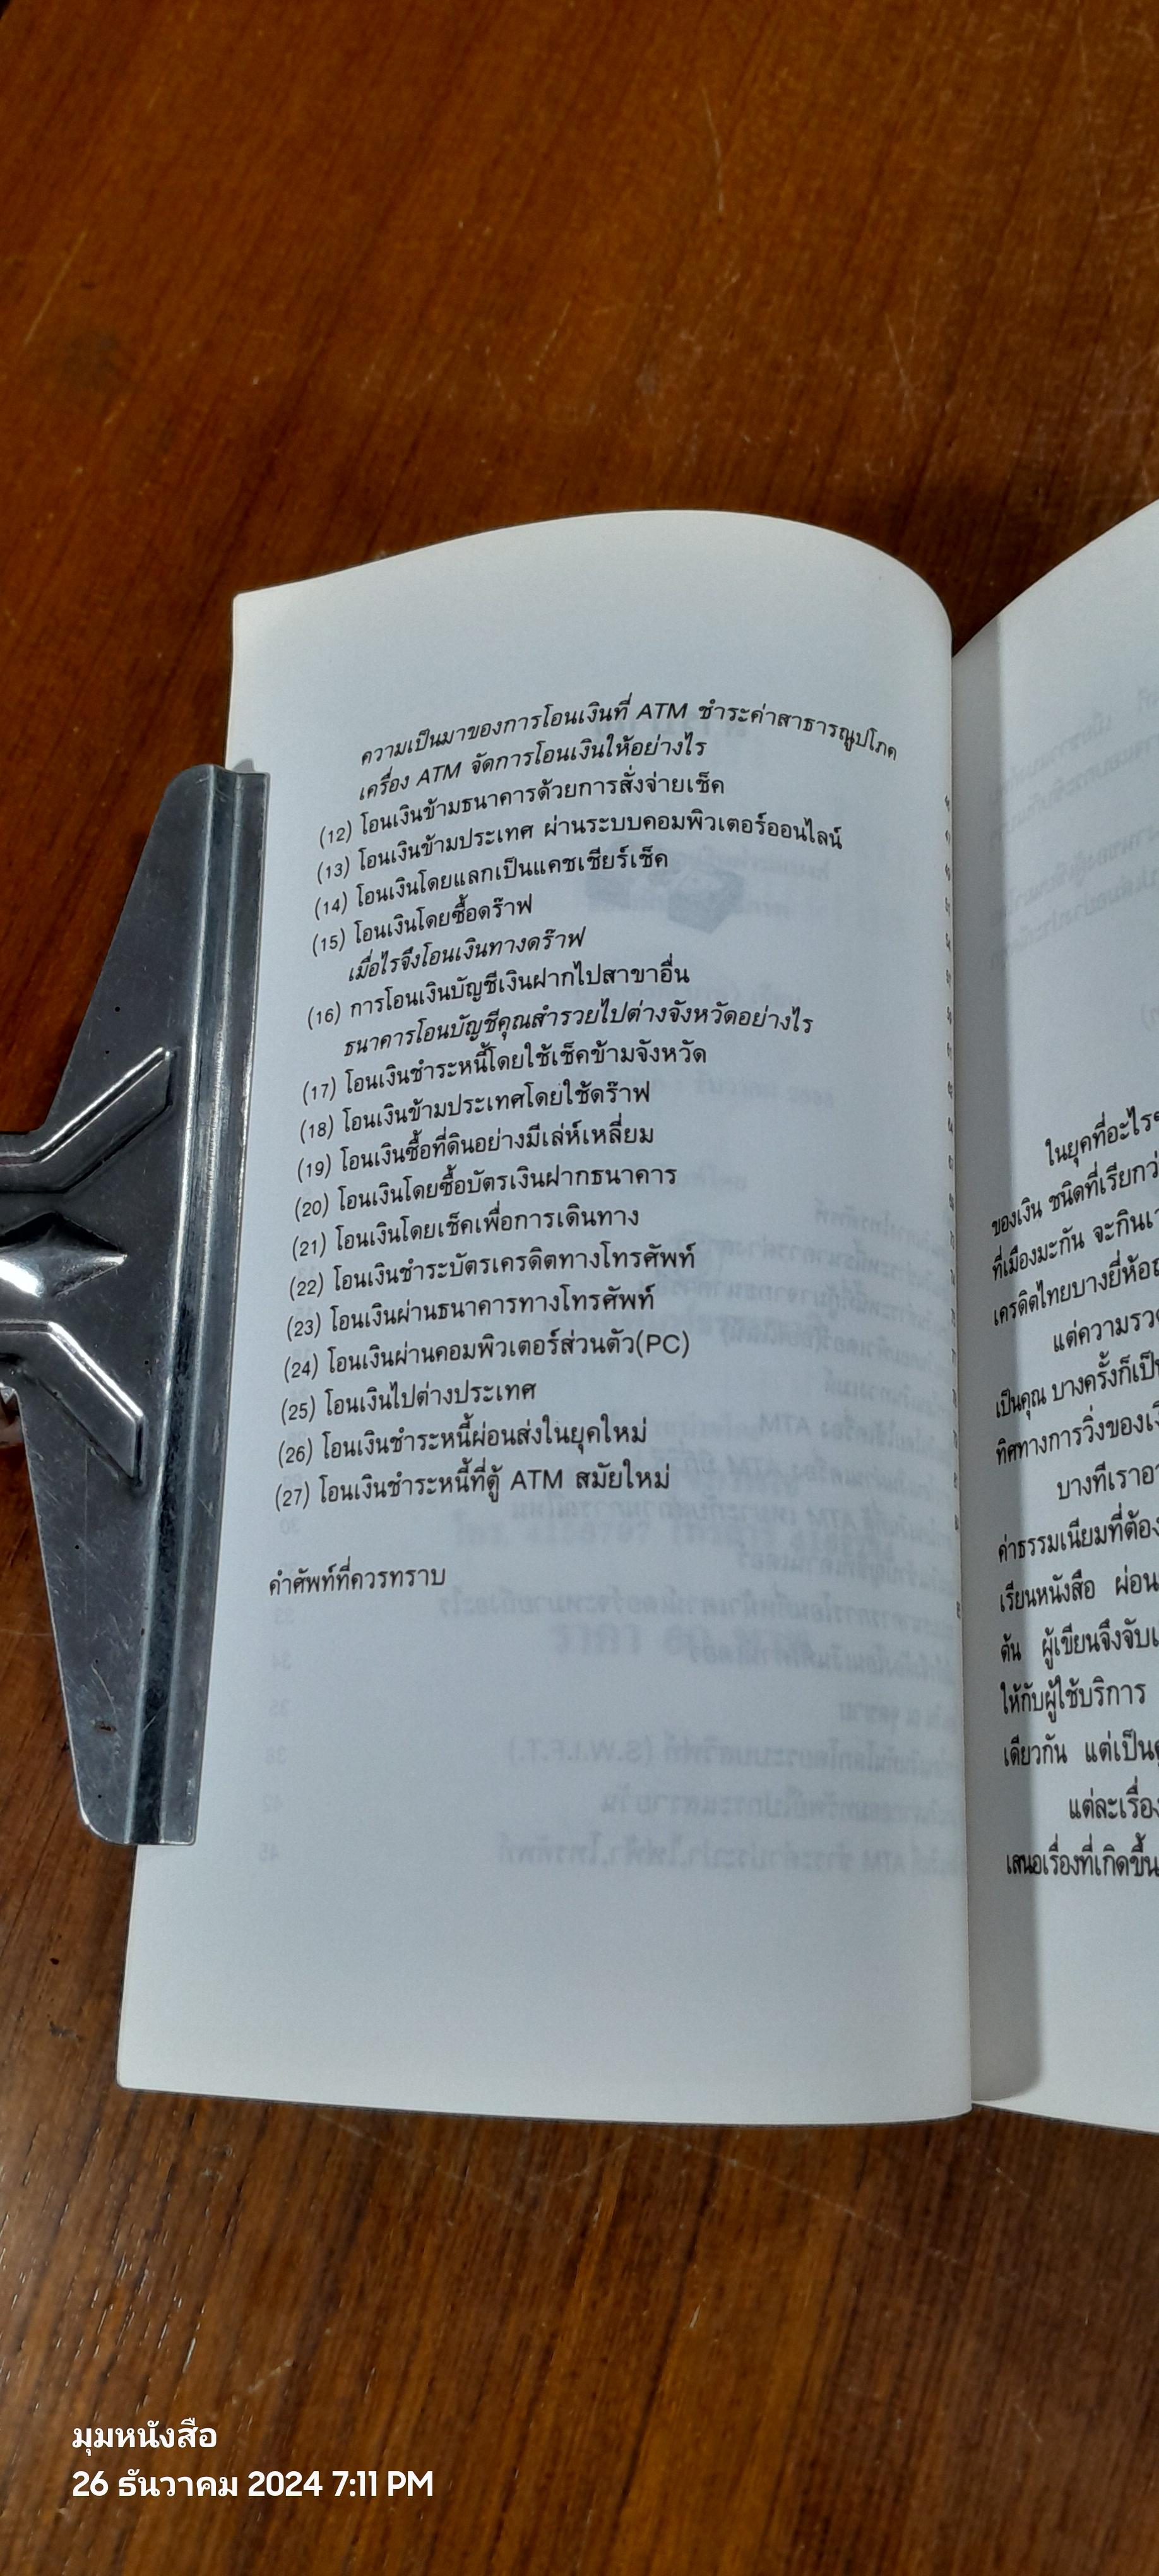 ความเป็นมาของการโอนเงินที่ ATM ชำระค่าสาธารณูปโภค
เครื่อง ATM จัดการโอนเงินให้อย่างไร
(12) โอนเงินข้ามธนาคารด้วยการสั่งจ่ายเช็ค
(13) โอนเงินข้ามประเทศ ผ่านระบบคอมพิวเตอร์ออนไลน์
(14) โอนเงินโดยแลกเป็นแคชเชียร์เช็ค
(15) โอนเงินโดยซื้อดร๊าฟ
เมื่อไรจึงโอนเงินทางดร๊าฟ
(16) การโอนเงินบัญชีเงินฝากไปสาขาอื่น
ธนาคารโอนบัญชีคุณสำรวยไปต่างจังหวัดอย่างไร
(17) โอนเงินชำระหนี้โดยใช้เช็คข้ามจังหวัด
(18) โอนเงินข้ามประเทศโดยใช้ดร๊าฟ
(19) โอนเงินซื้อที่ดินอย่างมีเล่ห์เหลี่ยม
(20) โอนเงินโดยซื้อบัตรเงินฝากธนาคาร
(21) โอนเงินโดยเช็คเพื่อการเดินทาง
(22) โอนเงินชำระบัตรเครดิตทางโทรศัพท์
(23) โอนเงินผ่านธนาคารทางโทรศัพท์
(24) โอนเงินผ่านคอมพิวเตอร์ส่วนตัว(PC)
(25) โอนเงินไปต่างประเทศ
(26) โอนเงินชำระหนี้ผ่อนส่งในยุคใหม่
(27) โอนเงินชำระหนี้ที่ตู้ ATM สมัยใหม่
คำศัพท์ที่ควรทราบ
ในยุคที่อะไรๆ
ของเงิน ชนิดที่เรียกว่
ที่เมืองมะกัน จะกินเว
เครดิตไทยบางยี่ห้อ
แต่ความรวด
เป็นคุณ บางครั้งก็เป็น
ทิศทางการวิ่งของเงิ
บางทีเราอา
ค่าธรรมเนียมที่ต้อง
เรียนหนังสือ ผ่อน
ต้น ผู้เขียนจึงจับเ
ให้กับผู้ใช้บริการ
เดียวกัน แต่เป็น
แต่ละเรื่อง
เสนอเรื่องที่เกิดขึ้น
มุมหนังสือ
26 ธันวาคม 2024 7:11 PM